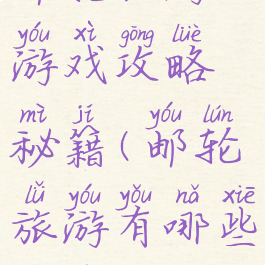 yóu xì gōng lüè
游戏攻略
mì jí yóu lún
秘籍(邮轮
lǚ yóu yǒu nǎ xiē
旅游有哪些